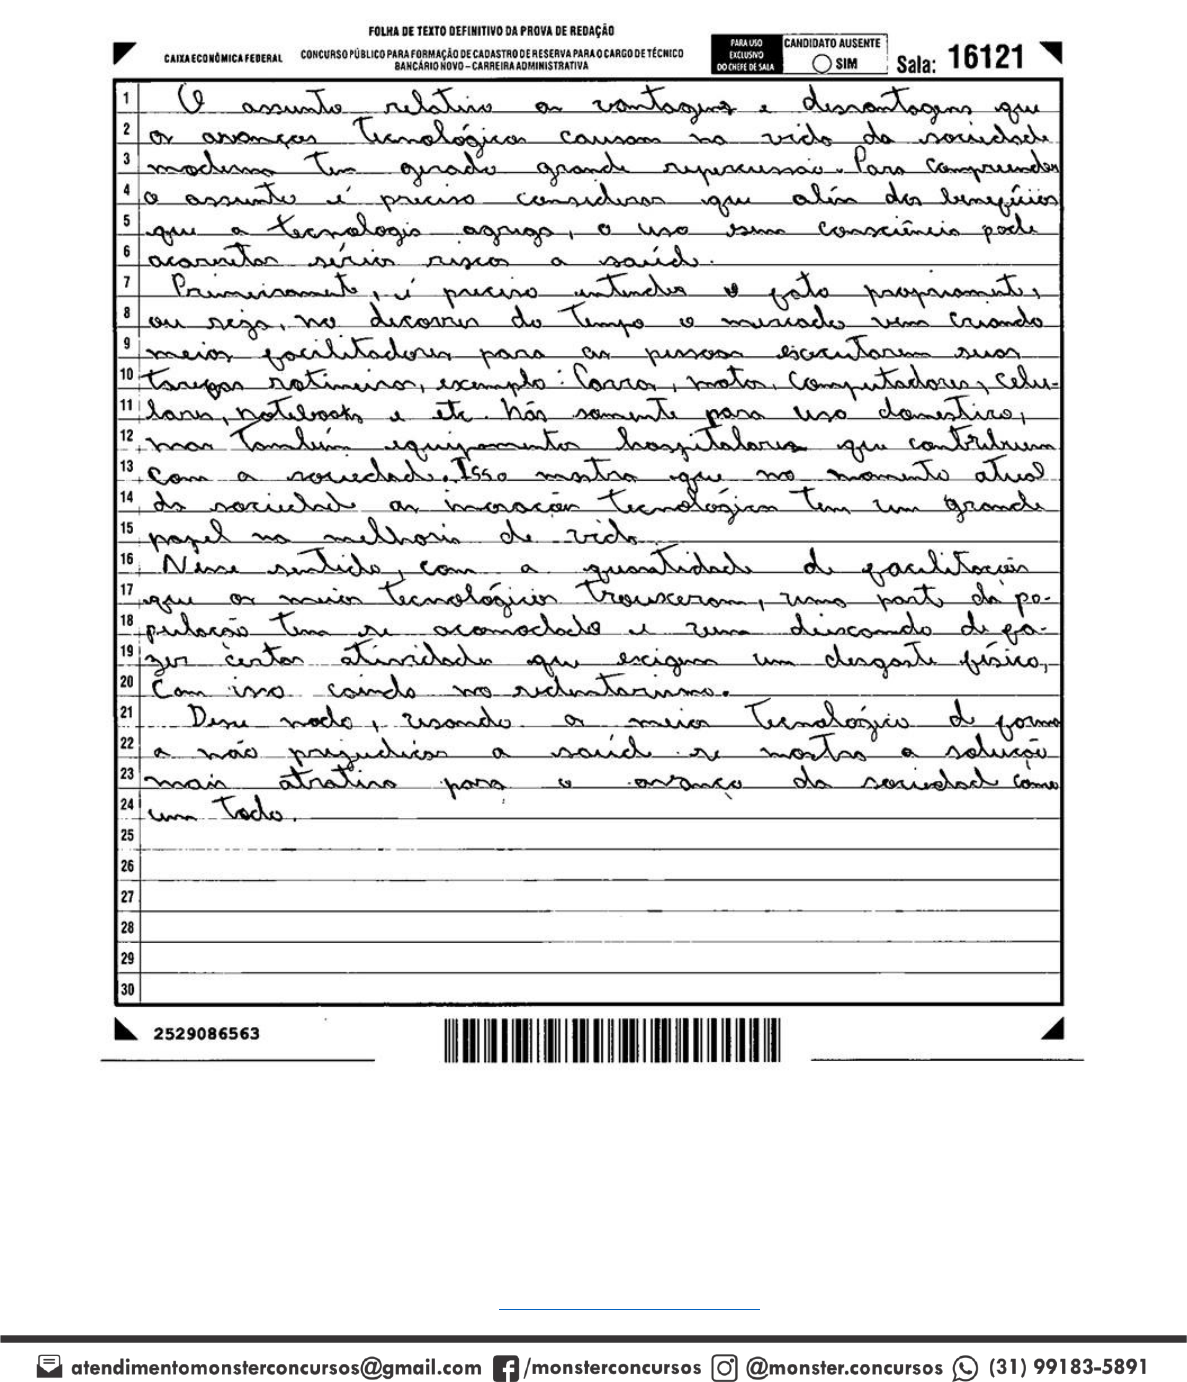 FOLHA DE TEXTO DEFINITIVO DA PROVA DE REDAÇÃO
CAIXA ECONÔMICA FEDERAL
CONCURSO PÚBLICO PARA FORMAÇÃO DE CADASTRO DE RESERVA PARA O CARGO DE TÉCNICO
BANCÁRIO NOVO – CARREIRA ADMINISTRATIVA
PARA USO
EXCLUSIVO
DO CHEFE DE SALA
CANDIDATO AUSENTE
SIM
Sala: 16121
1 O assunto relativo as vantagens e desvantagens que
2 os avanços tecnológicos causam na vida da sociedade
3 moderna tem gerado grande repercussão. Para compreender
4 o assunto é preciso considerar que além dos benefícios
5 que a tecnologia agrega, o uso sem consciência pode
6 acarretar sérios riscos a saúde.
7 Primeiramente, é preciso entender o fato propriamente,
8 ou seja, no decorrer do tempo o mercado vem criando
9 meios facilitadores para as pessoas executarem suas
10 tarefas rotineiras, exemplo: Carros, motos, computadores, celu-
11 lares, notebooks e etc. Não somente para uso domestico,
12 mas também equipamentos hospitalares que contribuem
13 com a sociedade. Isso mostra que no momento atual
14 da sociedade as inovações tecnológicas tem um grande
15 papel na melhoria de vida.
16 Nesse sentido, com a quantidade de facilitações
17 que os meios tecnológicos trouxeram, uma parte da po-
18 pulação tem se acomodado e vem deixando de fa-
19 zer certas atividades que exigem um desgaste físico,
20 Com isso caindo no sedentarismo.
21 Desse modo, usando os meios tecnológico de forma
22 a não prejudicar a saúde se mostra a solução
23 mais atrativa para o avanço da sociedade como
24 um todo.
25
26
27
28
29
30
2529086563
atendimentomonsterconcursos@gmail.com /monsterconcursos @monster.concursos (31) 99183-5891